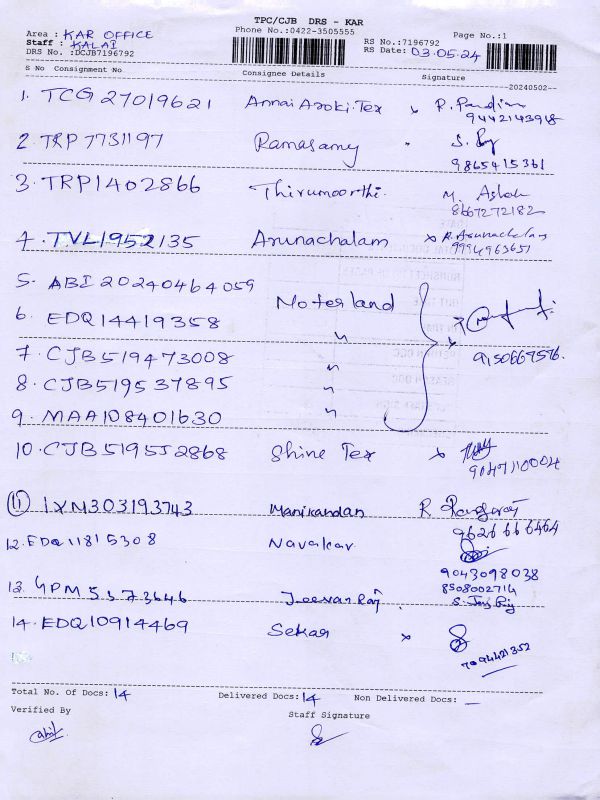 TPC/CJB DRS - KAR
Area : KAR OFFICE Phone No.:0422-3505555 Page No.:1
Staff : KALAI RS No.:7196792
DRS No. :DCJB7196792 RS Date: 03.05.24
S No Consignment No Consignee Details Signature
--20240502--
1. TCG 27019621 Annai Aroki.Tex x R. Pandian
9442143948
2. TRP 7731197 Ramasamy
9865415361
3. TRP1402866 Thirumoorthi. M. Ashok
8667272182
4. TVL1952135 Arunachalam x R. Arunachalam
9994963651
5. ABI 20240464059 Moterland
6. EDQ 14419358 "
7. CJB519473008 "
9150667576.
8. CJB519537895 "
9. MAA108401630 "
10. CJB519552868 Shine Tex x
9047110004
11 IXM303193743 Manikandan R Rangaraj
9626666464
12. EDQ 11815308 Navakar
9043098038
8508002714
13. GPM 5573646 Jeevan Raj
14. EDQ10914469 Sekar x
7094421352
Total No. Of Docs: 14 Delivered Docs: 14 Non Delivered Docs: —
Verified By Staff Signature